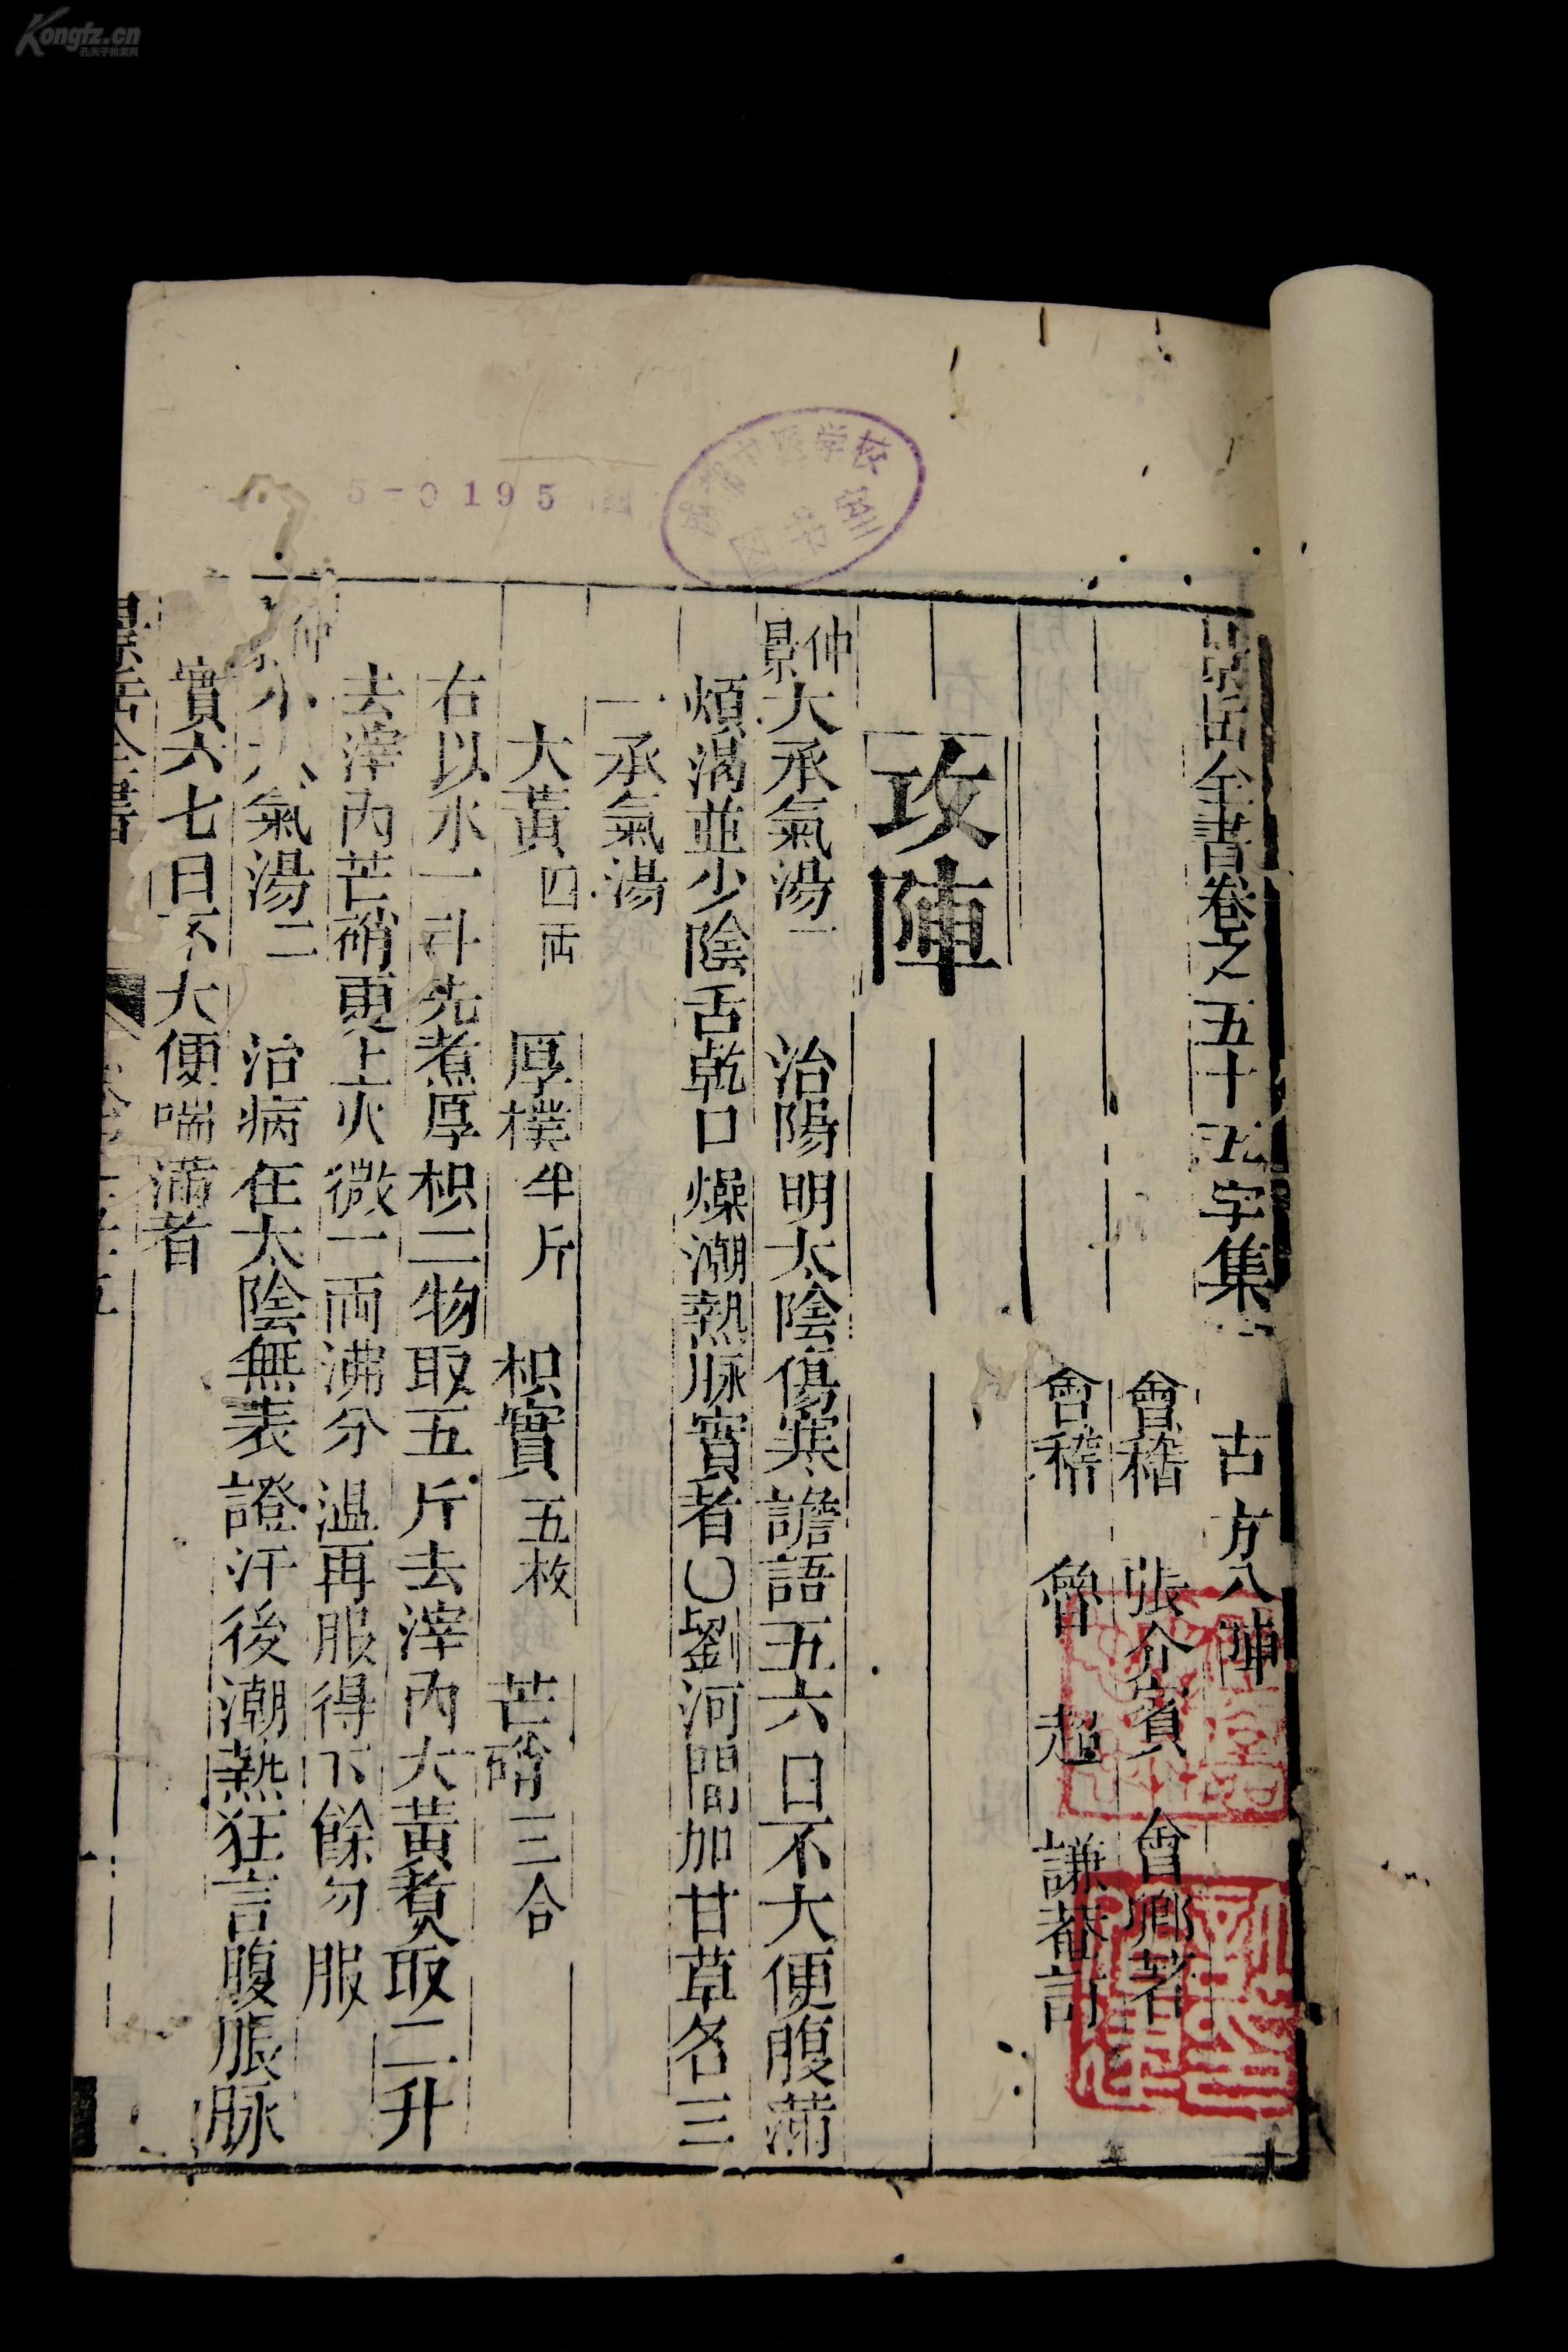 景岳全書卷之五十五字集 古方八陣
會稽 張介賓 會卿著
會稽 魯 超 謙菴訂
攻陣
仲景大承氣湯一 治陽明太陰傷寒譫語五六日不大便腹滿
煩渴並少陰舌乾口燥潮熱脉實者○劉河間加甘草名三
一承氣湯
大黃四両 厚樸半斤 枳實五枚 芒硝三合
右以水一斗先煮厚枳二物取五斤去滓內大黃煮取二升
去滓內芒硝更上火微一兩沸分溫再服得下餘勿服
仲小承氣湯二 治病在太陰無表證汗後潮熱狂言腹脹脉
實六七日不大便喘滿者
景岳全書
5-0195
Kongfz.cn
孔夫子拍卖网